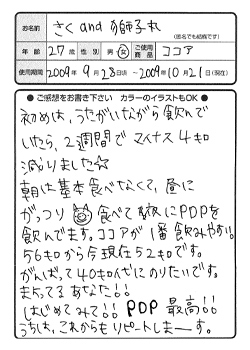 お名前 さく and お獅子丸
(匿名でも結構です)
年齢 27歳 性別 男・女 ご使用商品 ココア
使用期間 2009年 9月 28日 ～ 2009年 10月 21日(現在)
● ご感想をお書き下さい カラーのイラストもOK ●
初めは、うたがいながら飲んで
いたら、2週間でマイナス4キロ
減りました☆
朝は基本食べなくて、昼に
がっつり 食べて 夜にPDPを
飲んでます。ココアが1番飲みやすい!
56キロから今現在52キロです。
がんばって40キロ代にのりたいです。
まよってるあなた!!
はじめてみて!! PDP 最高!!
うちは、これからもリピートしまーす。